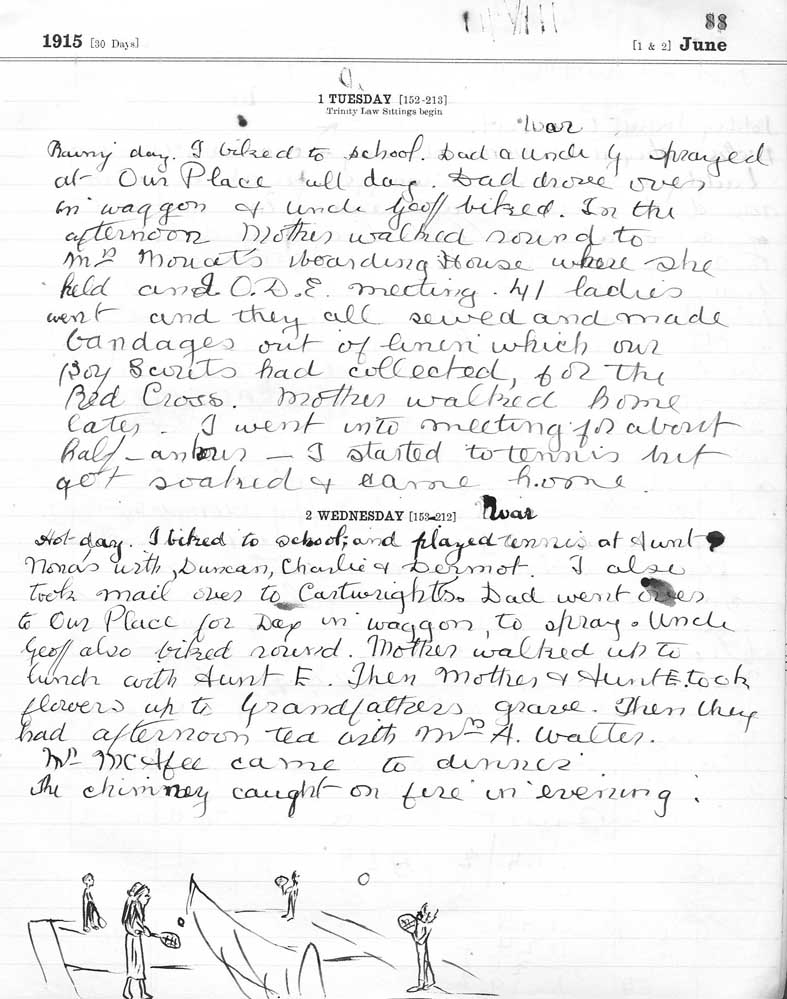 88
1915 [30 Days]
[1 & 2] June
1 TUESDAY [152-213]
Trinity Law Sittings begin
War
Rainy day. I biked to school. Dad & Uncle G sprayed
at Our Place all day. Dad drove over
in waggon & Uncle Geoff biked. In the
afternoon Mother walked round to
Mrs Mouat's boarding House where she
held an I.O.D.E. meeting. 41 ladies
went and they all sewed and made
bandages out of linen which our
Boy Scouts had collected, for the
Red Cross. Mother walked home
later. I went into meeting for about
half-an hour - I started to tennis but
got soaked & came home.
2 WEDNESDAY [153-212]
War
Hot day. I biked to school; and played tennis at Aunt
Nora's with Duncan, Charlie & Dermot. I also
took mail over to Cartwrights. Dad went over
to Our Place for Day in waggon, to spray. Uncle
Geoff also biked round. Mother walked up to
lunch with Aunt E. Then Mother & Aunt E. took
flowers up to Grandfathers grave. Then they
had afternoon tea with Mrs A. Walter.
Mr McAfee came to dinner
The chimney caught on fire in evening.